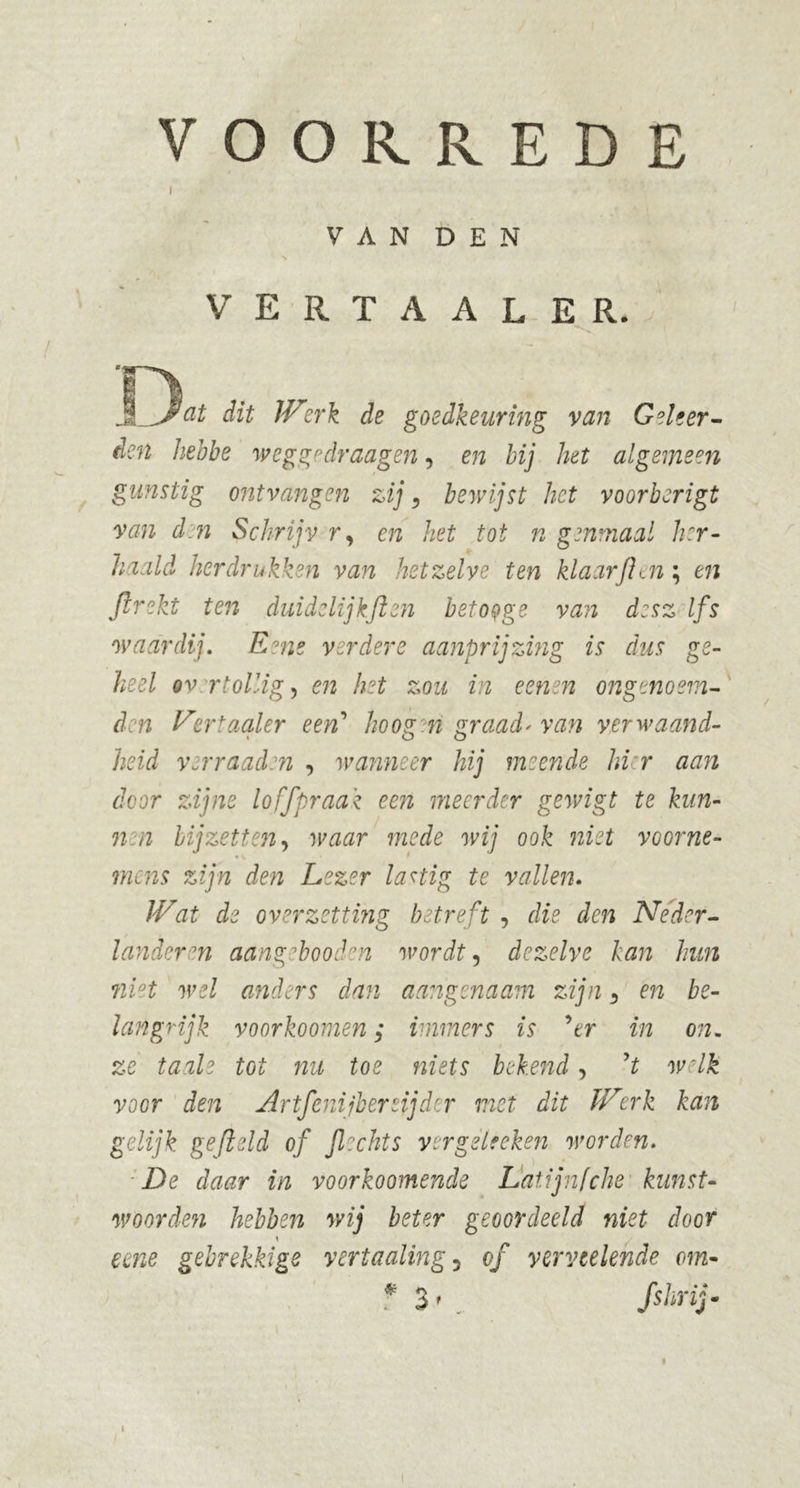 VOORREDE
VAN DEN
VERTAALER.
Dat dit Werk de goedkeuring van Geleer-
den hebbe weggedraagen, en bij het algemeen
gunstig ontvangen zij, bewijst het voorberigt
van den Schrijver, en het tot negenmaal her-
haald herdrukken van hetzelve ten klaarſten; en
ſtrekt ten duidelijkſten betooge van deszelfs
waardij. Eene verdere aanprijzing is dus ge-
heel overtollig, en het zou in eenen ongenoem-
den Vertaaler een' hoogen graad van verwaand-
heid verraaden, wanneer hij meende hier aan
door zijne loffpraak een meerder gewigt te kun-
nen bijzetten, waar mede wij ook niet voorne-
mens zijn den Lezer lastig te vallen.
Wat de overzetting betreft, die den Neder-
landeren aangebooden wordt, dezelve kan hun
niet wel anders dan aangenaam zijn, en be-
langrijk voorkoomen; immers is 'er in on-
ze taale tot nu toe niets bekend, 't welk
voor den Artſenijbereijder met dit Werk kan
gelijk geſteld of ſlechts vergeleeken worden.
De daar in voorkoomende Latijnſche kunst-
woorden hebben wij beter geoordeeld niet door
eene gebrekkige vertaaling, of verveelende om-
* 3 ſshrij-